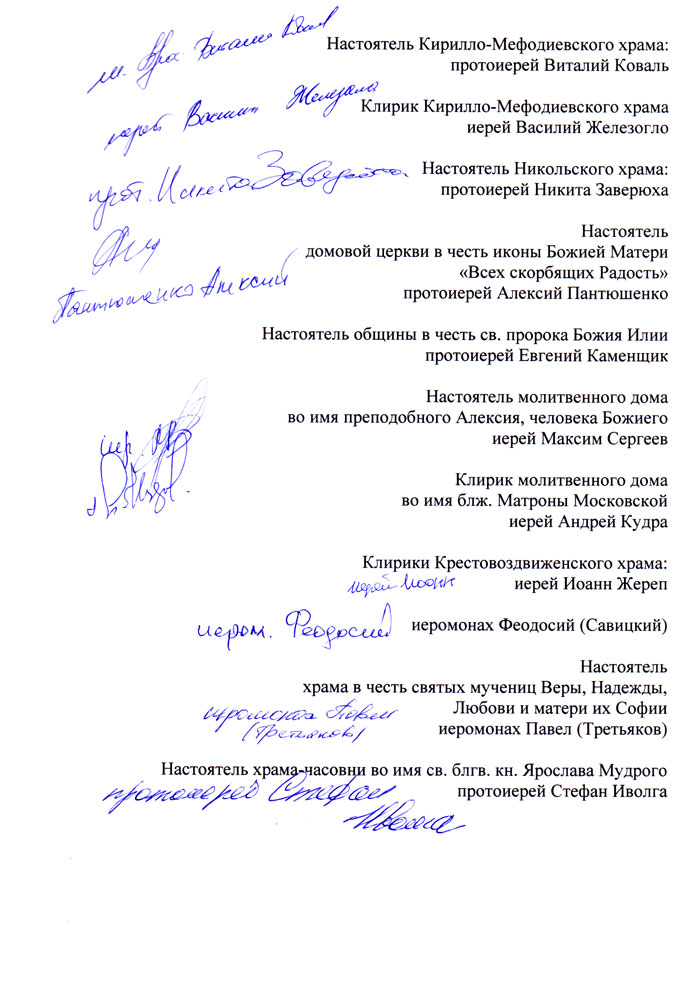 Настоятель Кирилло-Мефодиевского храма:
протоиерей Виталий Коваль
Клирик Кирилло-Мефодиевского храма
иерей Василий Железогло
иерей Василий
Настоятель Никольского храма:
протоиерей Никита Заверюха
прот. Никита Заверюха
Настоятель
домовой церкви в честь иконы Божией Матери
«Всех скорбящих Радость»
протоиерей Алексий Пантюшенко
Пантюшенко Алексий
Настоятель общины в честь св. пророка Божия Илии
протоиерей Евгений Каменщик
Настоятель молитвенного дома
во имя преподобного Алексия, человека Божиего
иерей Максим Сергеев
иер.
Клирик молитвенного дома
во имя блж. Матроны Московской
иерей Андрей Кудра
Клирики Крестовоздвиженского храма:
иерей Иоанн иерей Иоанн Жереп
иером. Феодосий иеромонах Феодосий (Савицкий)
Настоятель
храма в честь святых мучениц Веры, Надежды,
Любови и матери их Софии
иеромонах Павел
(Третьяков) иеромонах Павел (Третьяков)
Настоятель храма-часовни во имя св. блгв. кн. Ярослава Мудрого
протоиерей Стефан протоиерей Стефан Иволга
Иволга